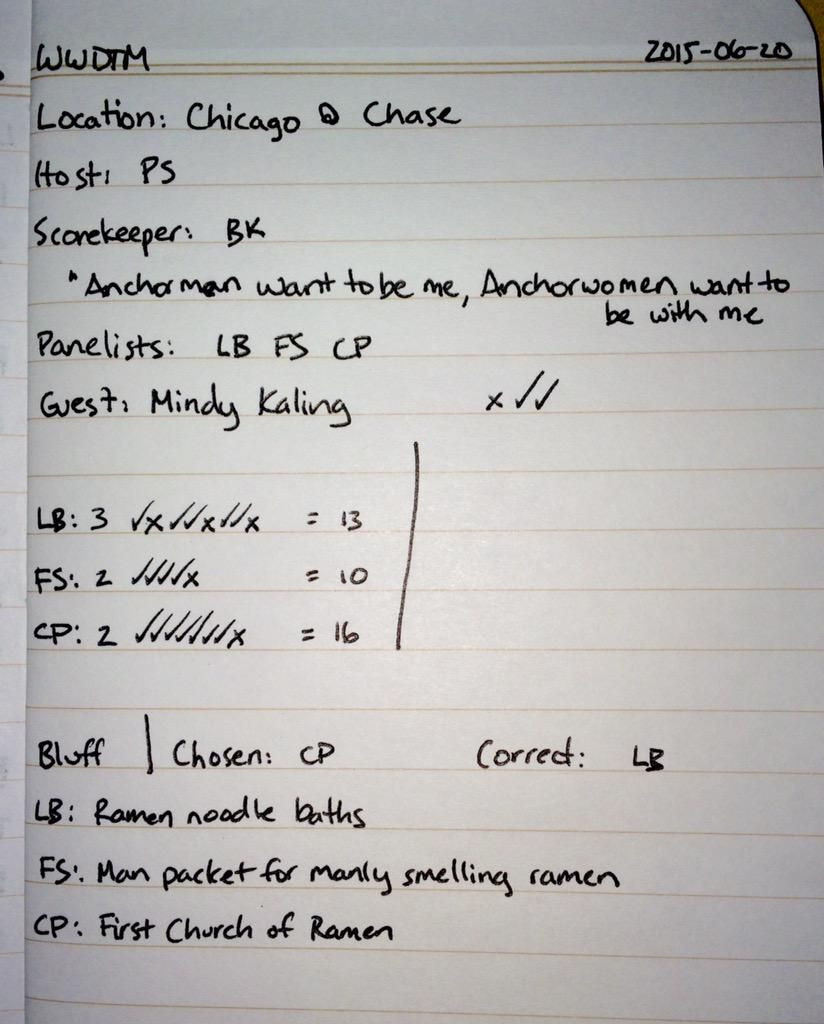 WWDTM 2015-06-20
Location: Chicago @ Chase
Host: PS
Scorekeeper: BK
"Anchorman want to be me, Anchorwomen want to
be with me
Panelists: LB FS CP
Guest: Mindy Kaling x✓✓
LB: 3 ✓x✓✓x✓✓x = 13
FS: 2 ✓✓✓✓x = 10
CP: 2 ✓✓✓✓✓✓✓x = 16
Bluff | Chosen: CP Correct: LB
LB: Ramen noodle baths
FS: Man packet for manly smelling ramen
CP: First Church of Ramen